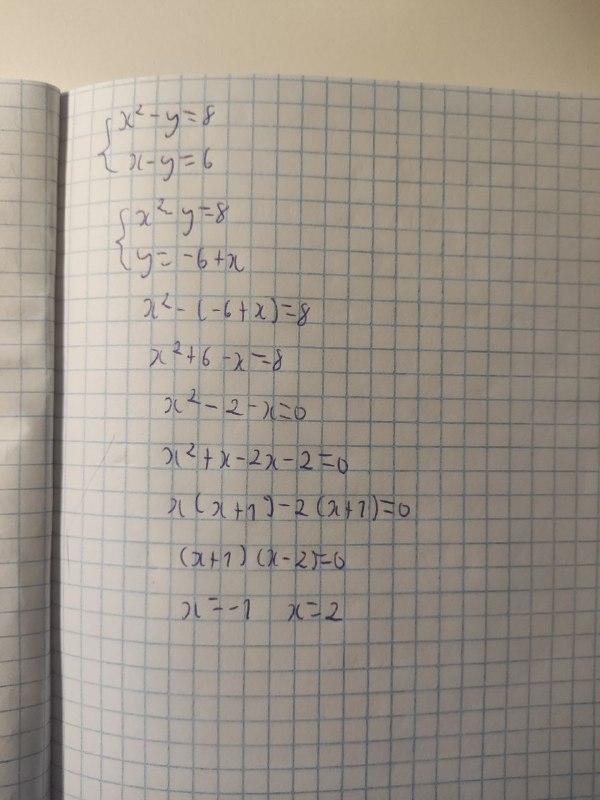 {x² - y = 8
{x - y = 6
{x² - y = 8
{y = -6 + x
x² - (-6 + x) = 8
x² + 6 - x = 8
x² - 2 - x = 0
x² + x - 2x - 2 = 0
x(x + 1) - 2(x + 1) = 0
(x + 1)(x - 2) = 0
x = -1 x = 2